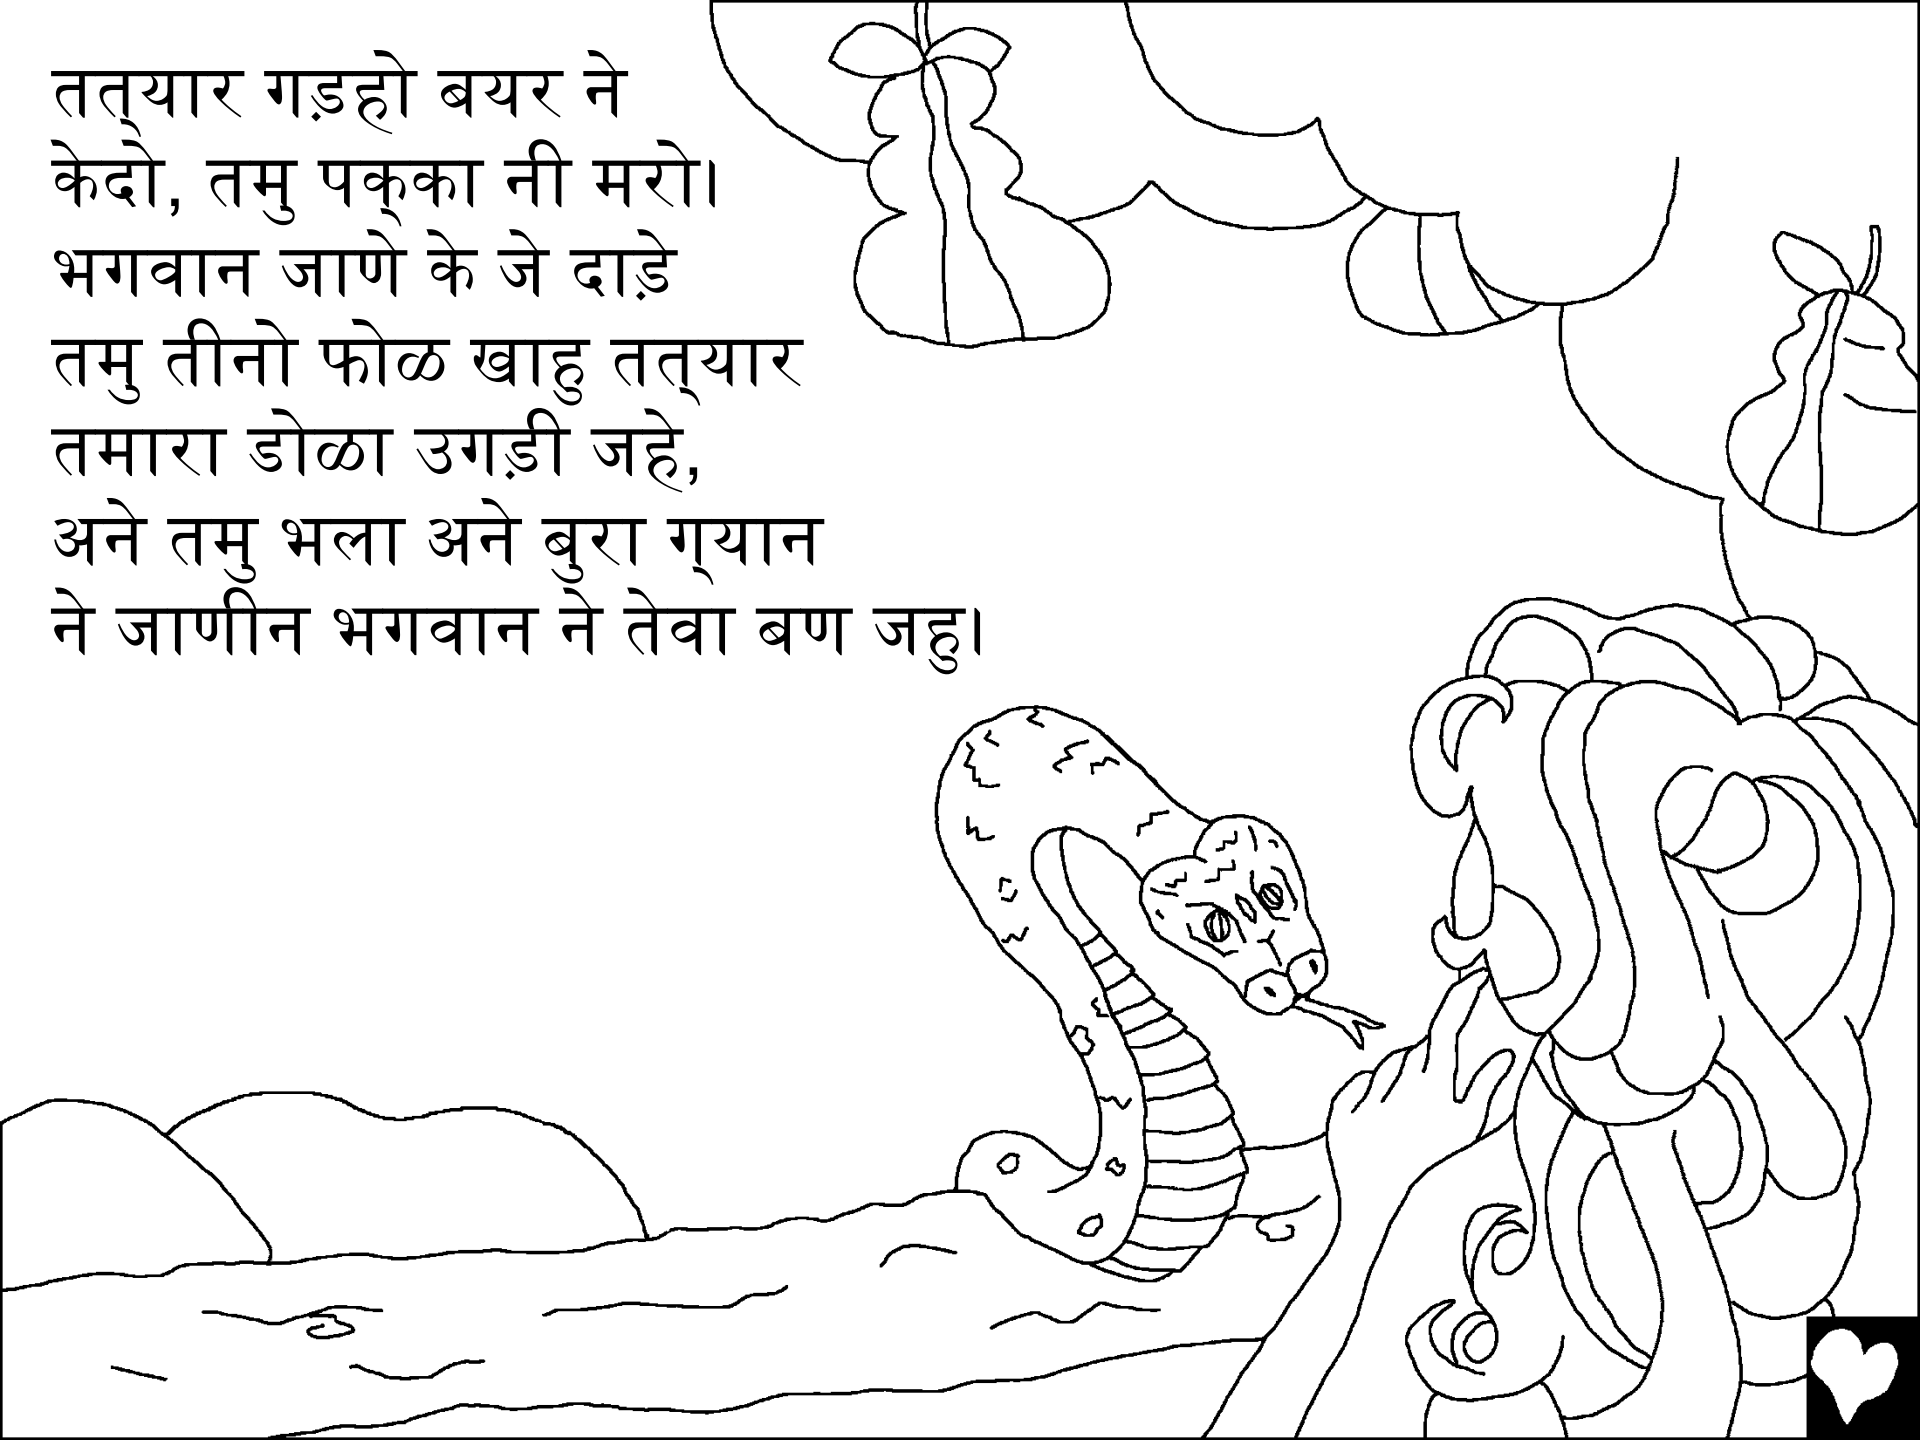 तत्‌यार गड़हो बयर ने
केदो, तमु पक्‌का नी मरो।
भगवान जाणे के जे दाड़े
तमु तीनो फोळ खाहु तत्‌यार
तमारा डोळा उगड़ी जहे,
अने तमु भला अने बुरा ग्‌यान
ने जाणीन भगवान ने तेवा बण जहु।